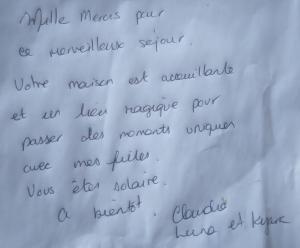 Mille Mercis pour
ce merveilleux sejour.
Votre maison est accueillante
et un lieu magique pour
passer des moments uniques
avec mes filles.
Vous êtes solaire.
A bientôt. Claudia
Luna et